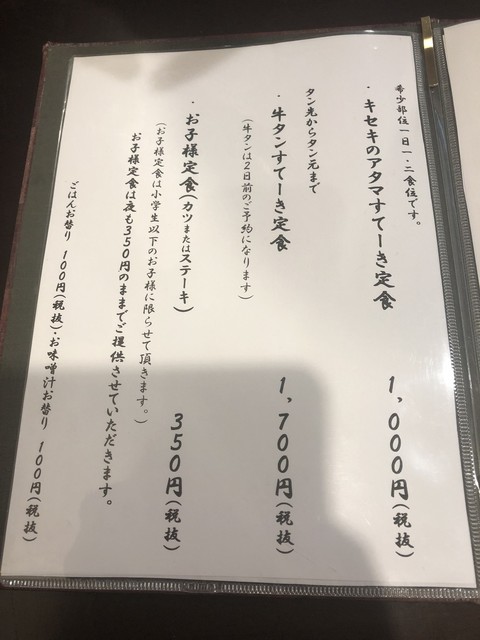 希少部位一日一・二食位です。
・キセキのアタマすてーき定食 1,000円(税抜)
タン先からタン元まで
・牛タンすてーき定食 1,700円(税抜)
(牛タンは2日前のご予約になります)
・お子様定食(カツまたはステーキ) 350円(税抜)
(お子様定食は小学生以下のお子様に限らせて頂きます。)
お子様定食は夜も350円のままでご提供させていただきます。
ごはんお替り 100円(税抜)・お味噌汁お替り 100円(税抜)